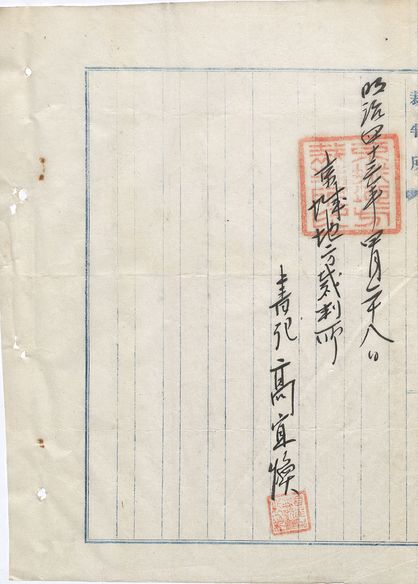 明治四十三年四月二十八日
京城地方裁判所
書記 高宜煥